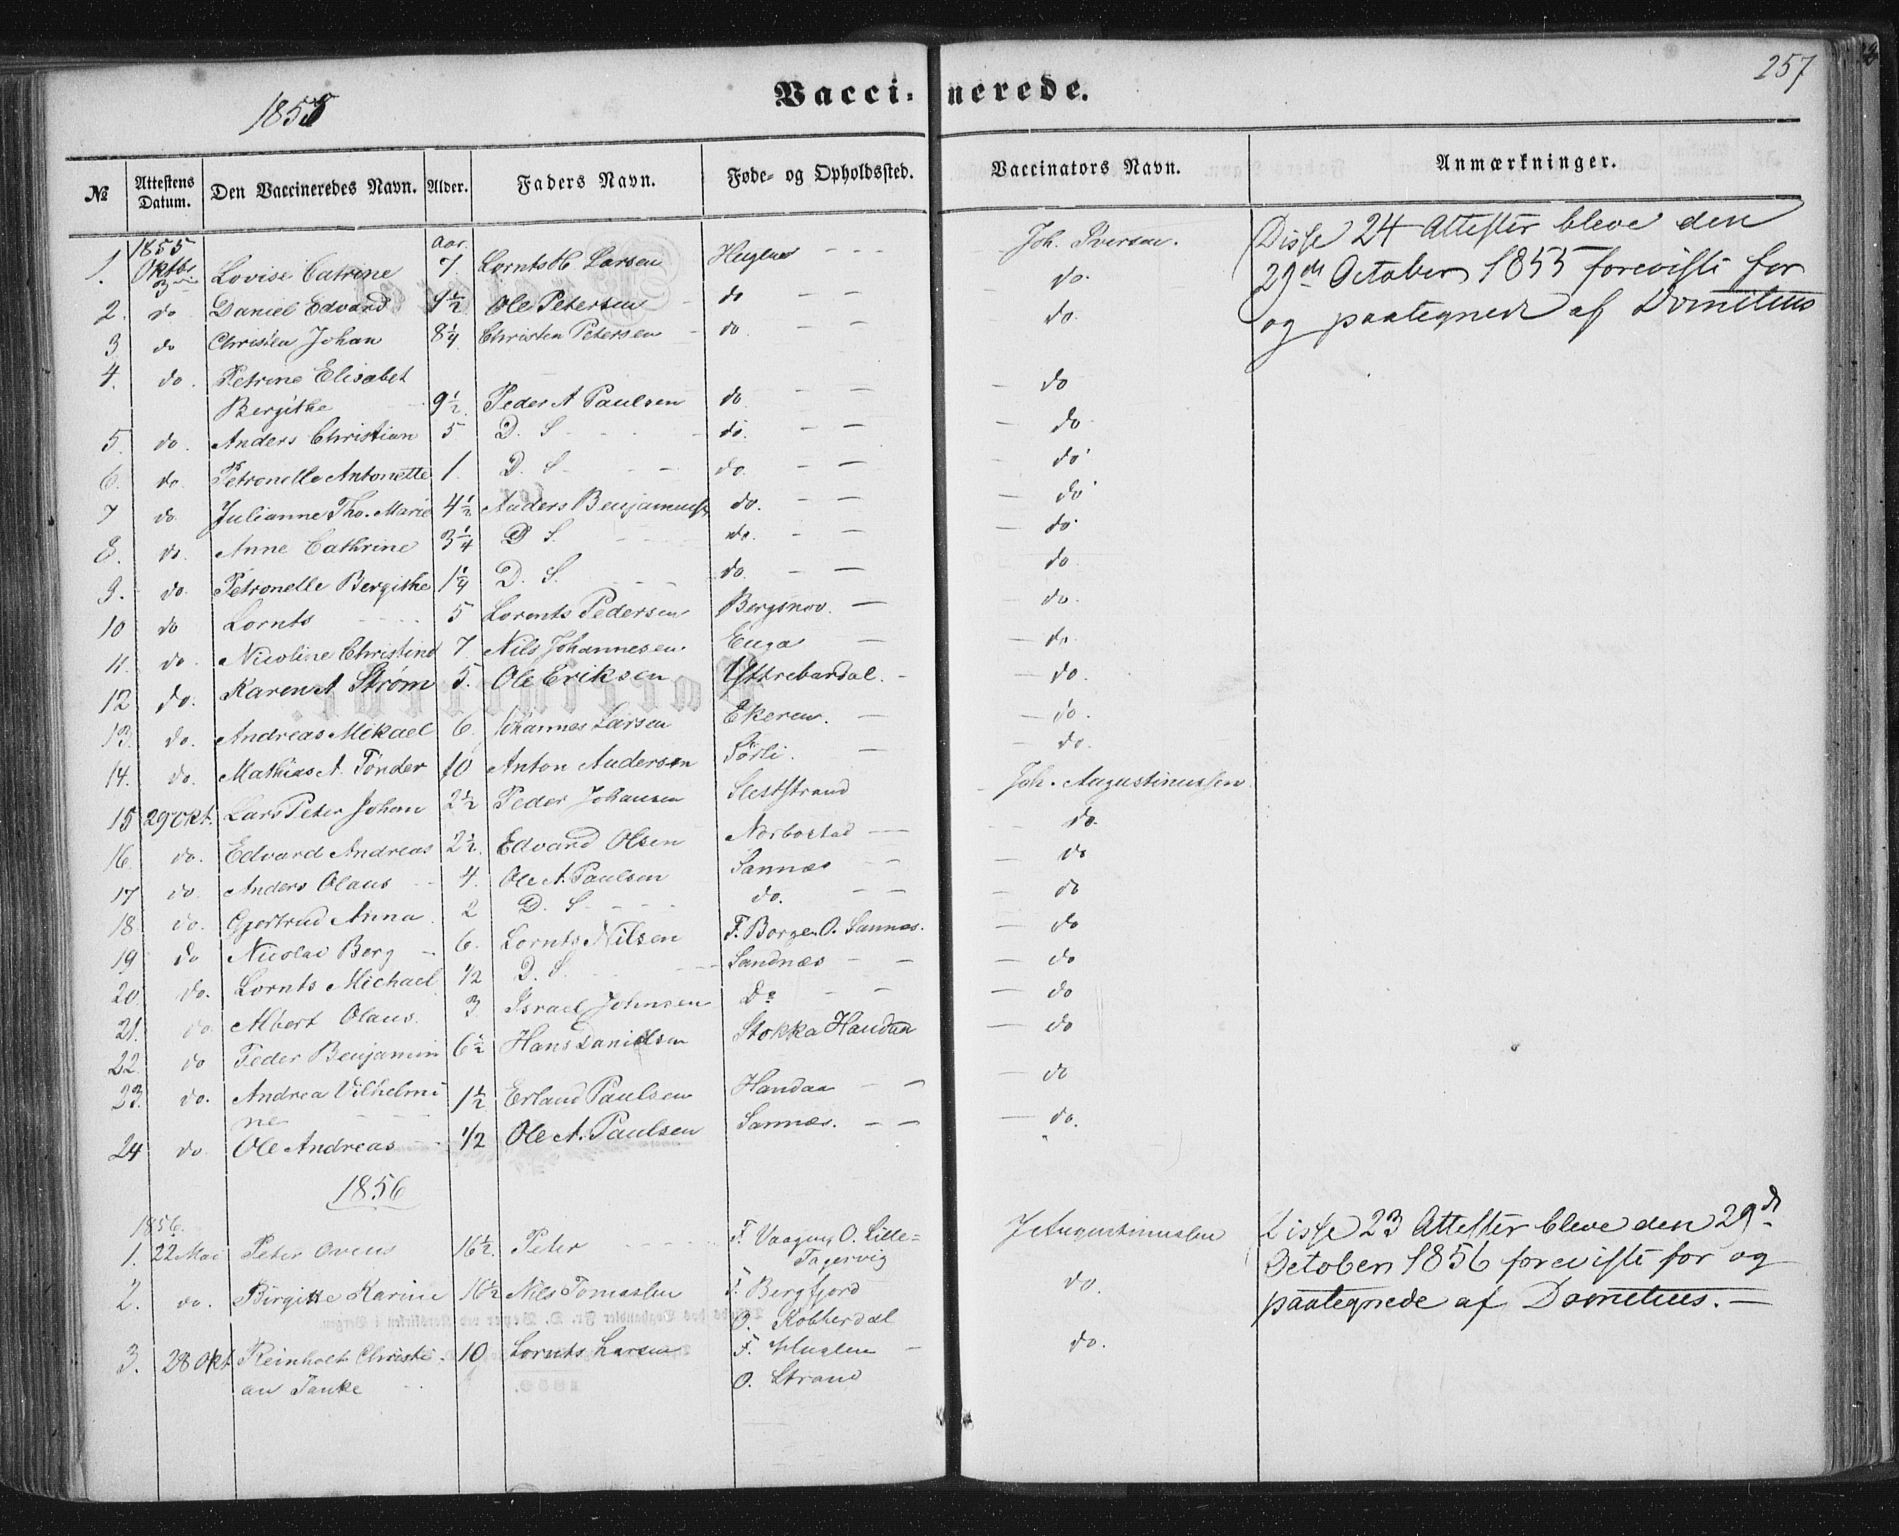 257
1855
Vaccinerede.
№ Attestens Datum. Den Vaccineredes Navn. Alder. Faders Navn. Føde- og Opholdssted. Vaccinators Navn. Anmærkninger.
1. 1855 Oktbr 3 Lovise Catrine aar. 7 Lornts H Larsen Huglen — — Joh. Iversen.
2. do Daniel Edvard 4½ Ole Petersen do — — do.
3 do Christen Johan 8¼ Christen Petersen do — — do.
4. do. Petrine Elisabet
Bergithe 9½ Peder A Paulsen do — — do
5. do Anders Christian 5 D. S. do. — — do
6. do Petronelle Antonette 1. D. S. do. — — do
7 do Julianne Tho. Marie 4½ Anders Benjaminsen do. — do
8. do. Anne Cathrine 3¼ D S. do. — — do
9. do Petronelle Bergithe 1¼ D. S. do. — — do
10 do Lornts 5 Lorents Pedersen Bergsnov. — do.
11. do. Nicoline Christine 7 Nils Johannesen. Enga — do.
12 do. Karen A Strøm 5. Ole Eriksen Yttrebardal. — do.
13. do. Andreas Mikael 6. Johannes Larsen Ekeren. — do.
14. do. Mathias A. Tönder 10 Anton Andersen Sørli. — do.
15 29 Okt. Lars Peter Johan 2½ Peder Johansen Sleststrand Joh. Augustinussen
16. do. Edvard Andreas 2½. Edvard Olsen Norbostad — do.
17 do. Anders Olaus 4. Ole A. Paulsen Sannæs — — do
18. do. Gjertrud Anna 2 D. S. do. — — do
19 do Nicolai Berg 6. Lornts Nilsen F. Borgen O. Sannæs. do
20. do. Lornts Michael ½ D. S. Sandnæs — — do
21. do Albert Olaus. 3 Israel Johnsen Do — — do
22. do Peder Benjamin 6½ Hans Danielsen Stokka Handaa do
23. do. Andrea Vilhelmi
ne 1½ Erland Paulsen Handaa — — do
24 do Ole Andreas ½ Ole A. Paulsen Sannæs. — — do.
Disse 24 Attester bleve den
29de October 1855 foreviste for
og paategnede af Domitius
1856
1856.
1. 22 Mai Peter Ovens 16½. Peter F. Vaagen O. Lille-
J Augustinussen
2. do. Birgitte Karine 16½ Nils Tomassen F. Bergfjord
O. Kobberdal do.
3. 28 Okt Reinholt Christi- 10 Lornts Larsen F. Huglen — do.
an Tanke O. Strand
Disse 23 Attester bleve den 29de
October 1856 foreviste for og
paategnede af Domitius. —